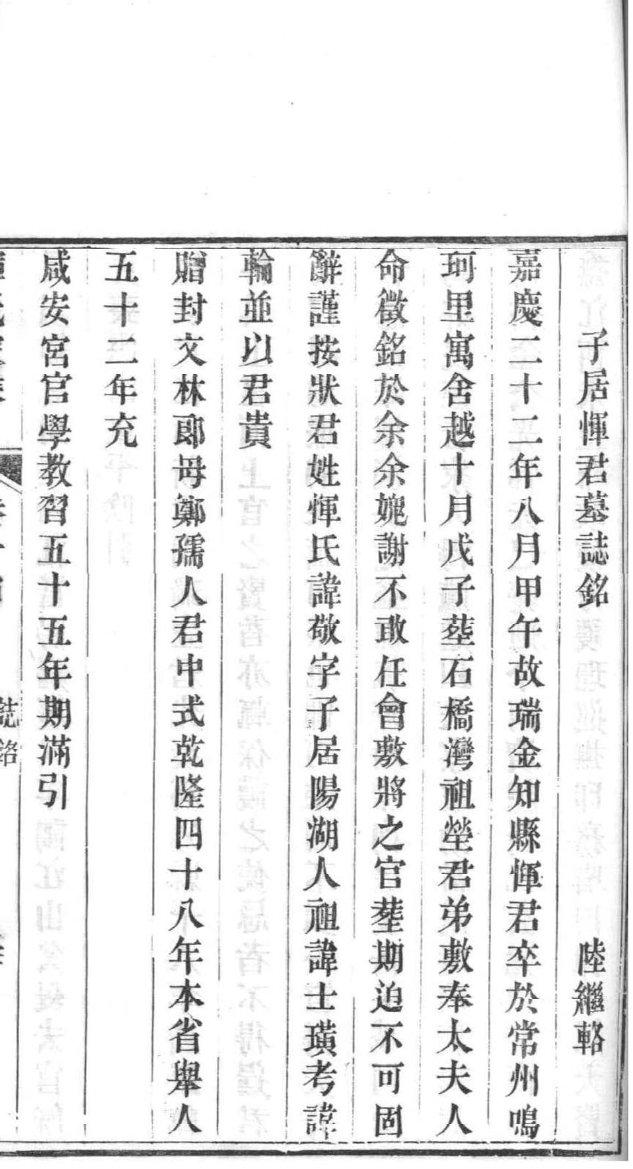 子居惲君墓誌銘　陸繼輅
嘉慶二十二年八月甲午故瑞金知縣惲君卒於常州鳴
珂里寓舍越十月戊子塟石橋灣祖塋君弟敷奉太夫人
命徵銘於余余媿謝不敢任會敷將之官塟期迫不可固
辭謹按狀君姓惲氏諱敬字子居陽湖人祖諱士璜考諱
輪並以君貴
贈封文林郎母鄭孺人君中式乾隆四十八年本省舉人
五十二年充
咸安宮官學教習五十五年期滿引
誌銘